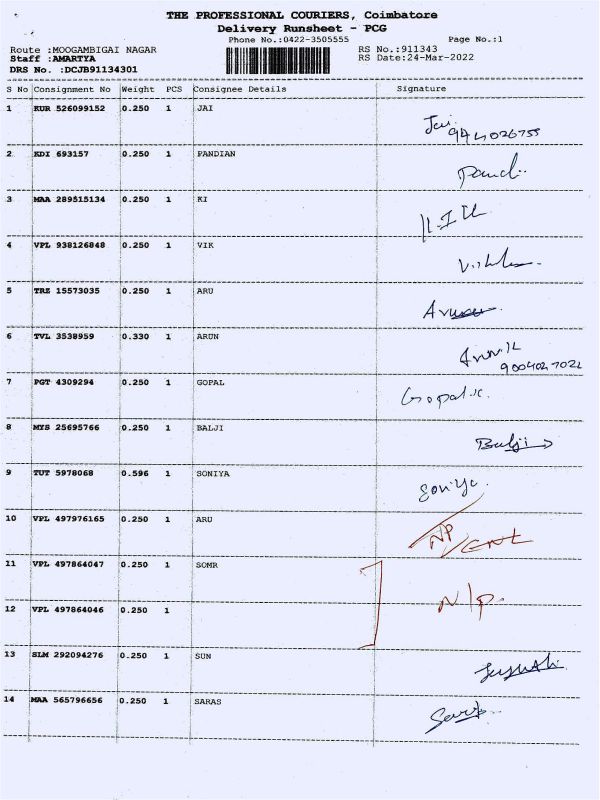 THE PROFESSIONAL COURIERS, Coimbatore
Delivery Runsheet - PCG
Phone No.:0422-3505555 Page No.:1
Route :MOOGAMBIGAI NAGAR RS No.:911343
Staff :AMARTYA RS Date:24-Mar-2022
DRS No. :DCJB91134301
S No Consignment No Weight PCS Consignee Details Signature
1 KUR 526099152 0.250 1 JAI Jai
2 KDI 693157 0.250 1 PANDIAN
3 MAA 289515134 0.250 1 KI
4 VPL 938126848 0.250 1 VIK
5 TRZ 15573035 0.250 1 ARU
6 TVL 3538959 0.330 1 ARUN
9004027022
7 PGT 4309294 0.250 1 GOPAL Gopal.K.
8 MYS 25695766 0.250 1 BALJI Balji
9 TUT 5978068 0.596 1 SONIYA Soniya.
10 VPL 497976165 0.250 1 ARU NP
11 VPL 497864047 0.250 1 SOMR
N/p.
12 VPL 497864046 0.250 1
13 SLM 292094276 0.250 1 SUN
14 MAA 565796656 0.250 1 SARAS